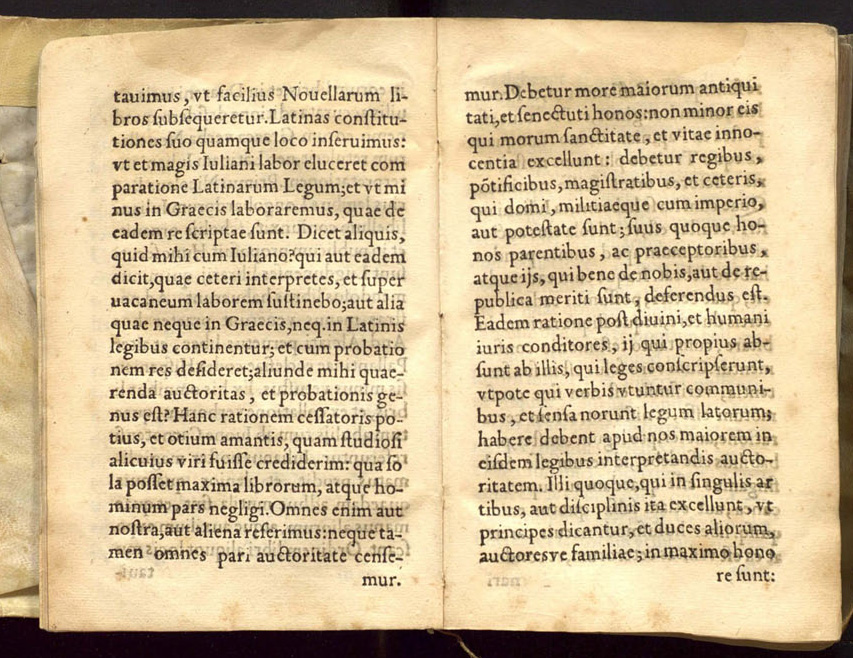 tauimus, vt facilius Nouellarum li-
bros ſubſequeretur. Latinas conſtitu-
tiones ſuo quamque loco inſeruimus:
vt et magis Iuliani labor eluceret com
paratione Latinarum Legum; et vt mi
nus in Graecis laboraremus, quae de
eadem re ſcriptae ſunt. Dicet aliquis,
quid mihi cum Iuliano? qui aut eadem
dicit, quae ceteri interpretes, et ſuper
uacaneum laborem ſuſtinebo; aut alia
quae neque in Graecis, neq. in Latinis
legibus continentur; et cum probatio
nem res deſideret; aliunde mihi quae-
renda auctoritas, et probationis ge-
nus eſt? Hanc rationem ceſſatoris po-
tius, et otium amantis, quam ſtudioſi
alicuius viri fuiſſe crediderim: qua ſo
la poſſet maxima librorum, atque ho-
minum pars negligi. Omnes enim aut
noſtra, aut aliena referimus: neque ta-
men omnes pari auctoritate cenſe-
mur.
mur. Debetur more maiorum antiqui
tati, et ſenectuti honos: non minor eis
qui morum ſanctitate, et vitae inno-
centia excellunt: debetur regibus,
põtificibus, magiſtratibus, et ceteris,
qui domi, militiaeque cum imperio,
aut poteſtate ſunt; ſuus quoque ho-
nos parentibus, ac praeceptoribus,
atque ijs, qui bene de nobis, aut de re-
publica meriti ſunt, deferendus eſt.
Eadem ratione poſt diuini, et humani
iuris conditores, ij qui propius ab-
ſunt ab illis, qui leges conſcripſerunt,
vtpote qui verbis vtuntur communi-
bus, et ſenſa norunt legum latorum;
habere debent apud nos maiorem in
eiſdem legibus interpretandis aucto-
ritatem. Illi quoque, qui in ſingulis ar
tibus, aut diſciplinis ita excellunt, vt
principes dicantur, et duces aliorum,
auctoresve familiae; in maximo hono
re ſunt: